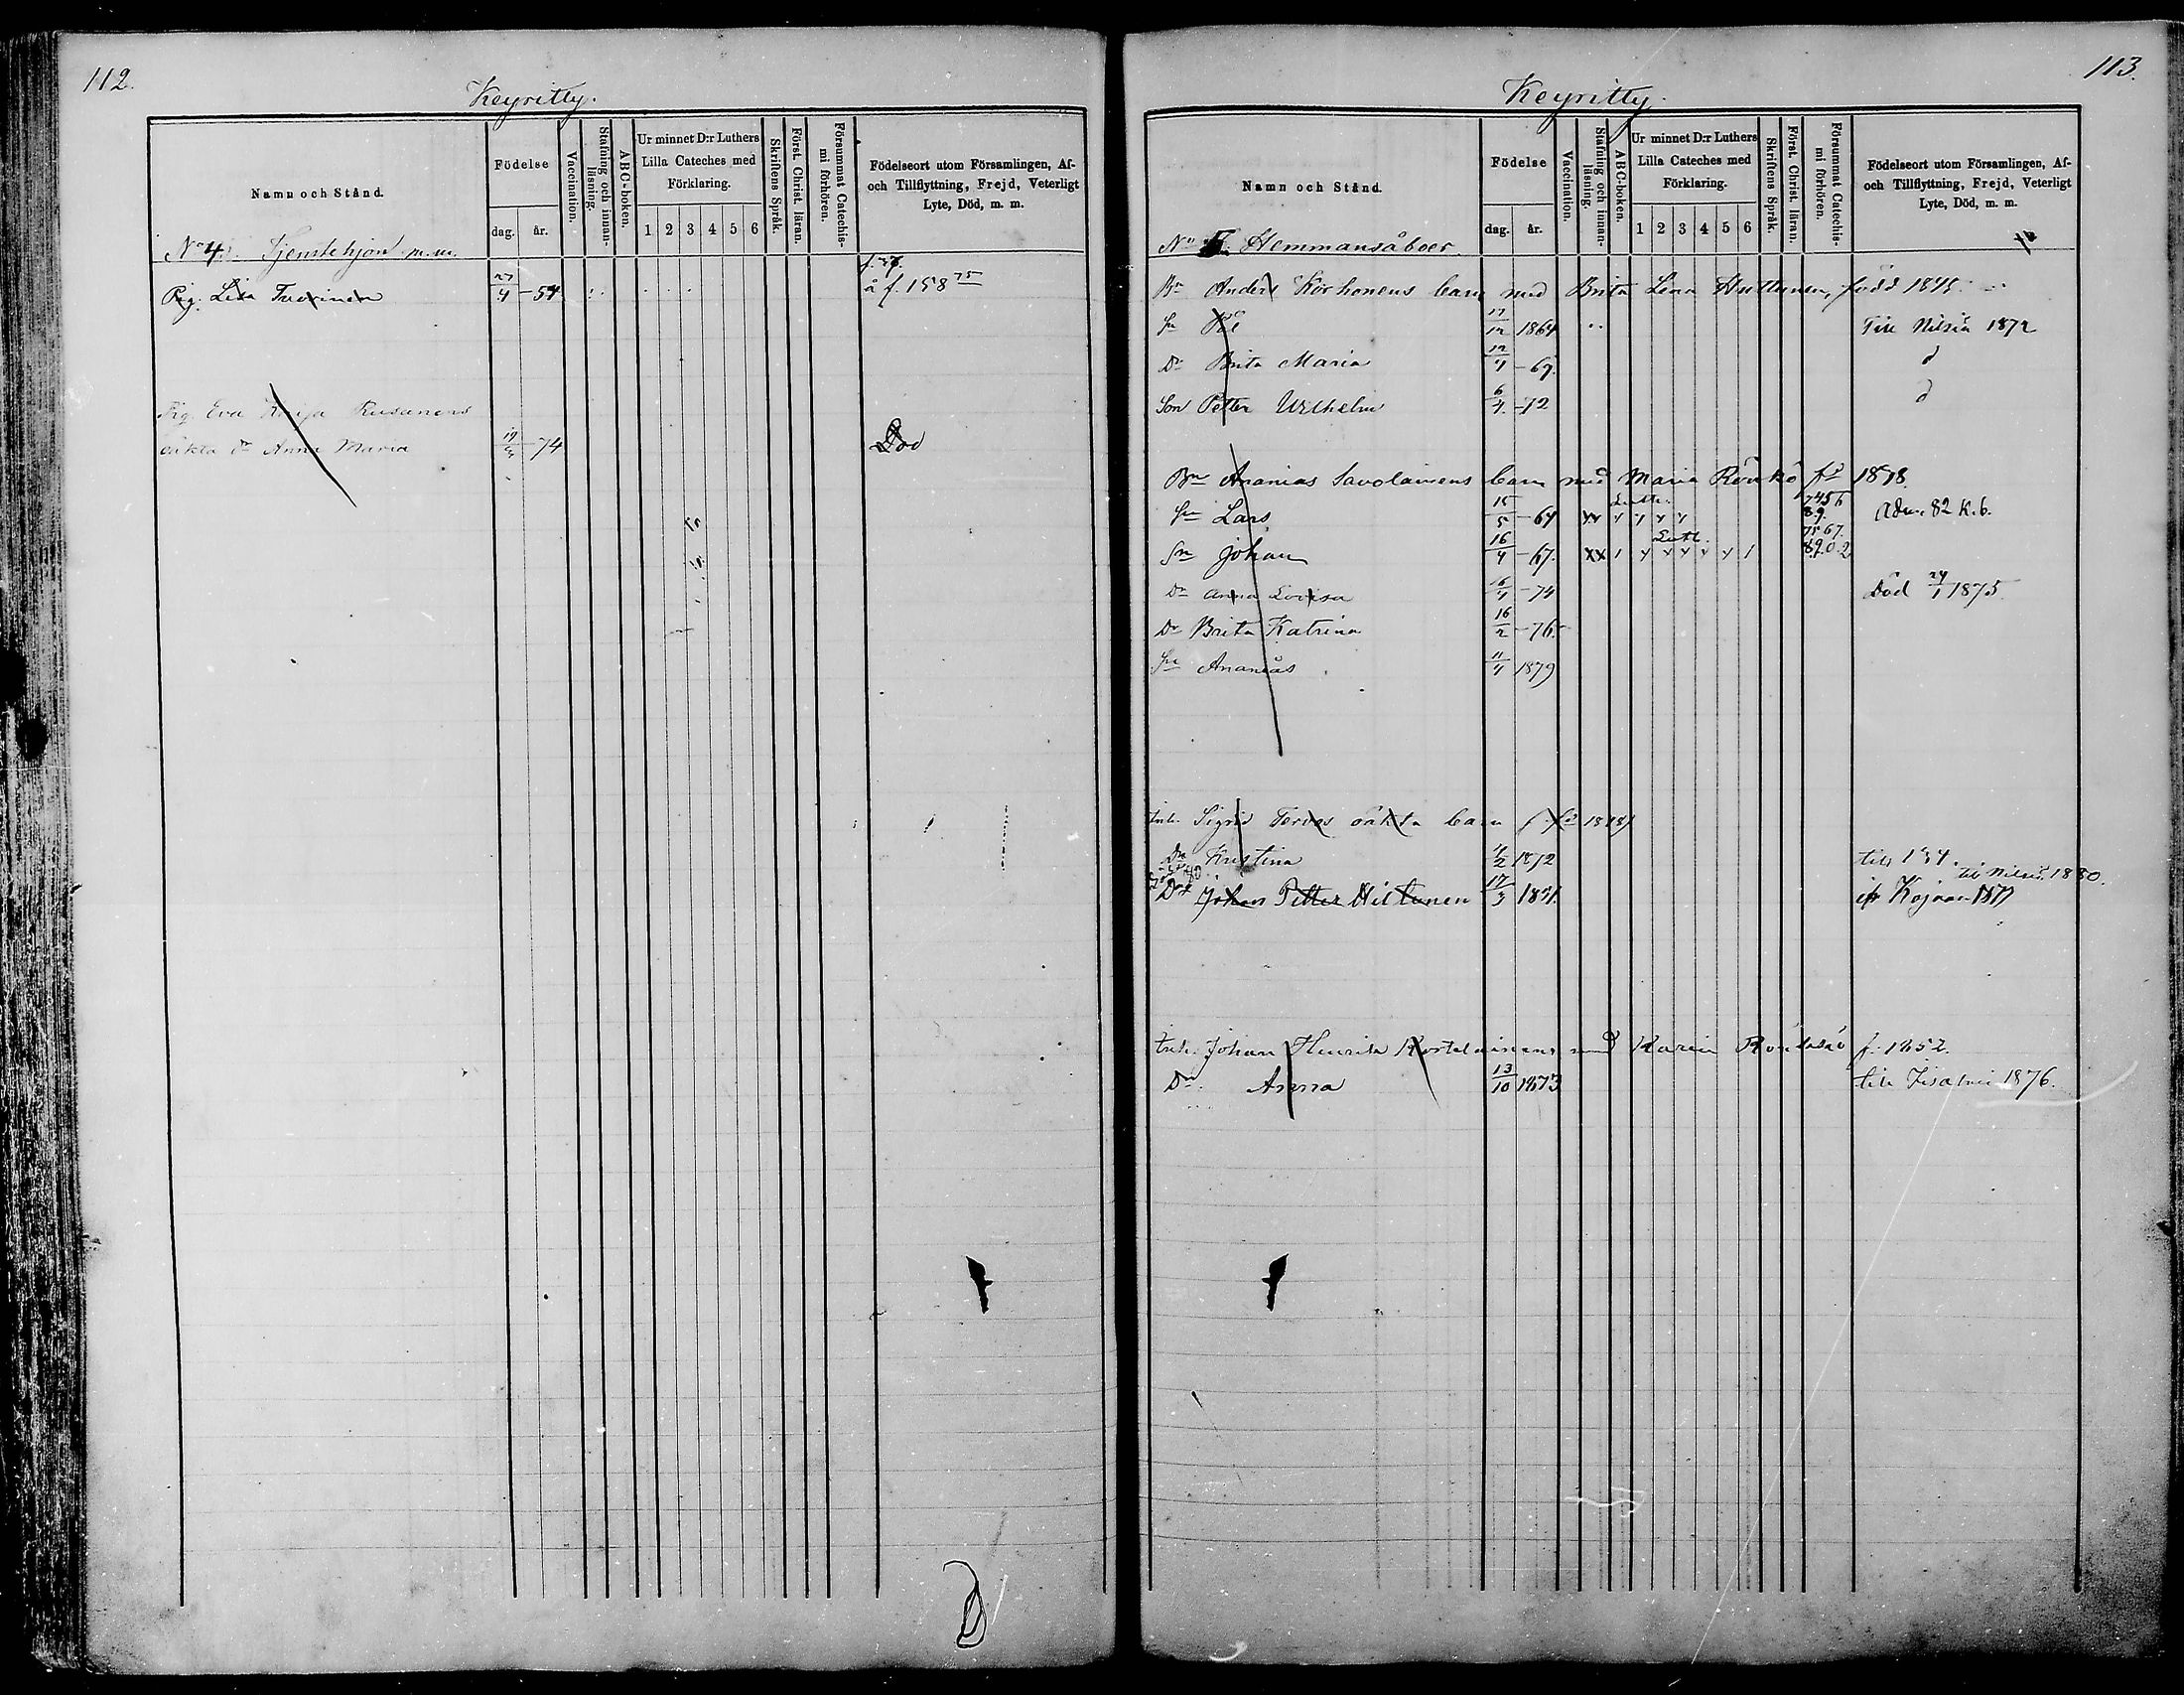 112.
Keyritty.
Namn och Stånd.
Födelse
dag. år.
Vaccination.
Stafning och innanläsning.
ABC-boken.
Ur minnet D:r Luthers Lilla Cateches med Förklaring.
1 2 3 4 5 6
Skriftens Språk.
Först. Christ. läran.
Försummat Catechismi förhören.
Födelseort utom Församlingen, Af- och Tillflyttning, Frejd, Veterligt Lyte, Död, m. m.
No 4. Tjenstehjon m.m.
Pig. Lisa Tuovinen 27/4 -54 å f. 158 75
Pig. Eva Rusanens
oäkta dr Anna Maria -74 Död
113.
Keyritty.
Namn och Stånd.
Födelse
dag. år.
Vaccination.
Stafning och innanläsning.
ABC-boken.
Ur minnet D:r Luthers Lilla Cateches med Förklaring.
1 2 3 4 5 6
Skriftens Språk.
Först. Christ. läran.
Försummat Catechismi förhören.
Födelseort utom Församlingen, Af- och Tillflyttning, Frejd, Veterligt Lyte, Död, m. m.
No 5. Hemmansåboer
Bn Anders Korhonens barn med Brita Lena Huttunen, född
Sn Pål 17/12 1864 Till Nilsiä 1872
Dr Brita Maria 12/4 -67. d
Son Petter Wilhelm 6/4 -72 d
Bn Ananias Savolainens barn med Maria Rönkö fd
Sn Lars 15/5 -64 Luth. Adm. 82 k. 6.
Sn Johan 16/4 -67. Luth.
Dr Anna Lovisa 16/4 -74 Död 24/1 1875
Dr Brita Katrina 16/2 -76
Sn Ananias 11/4 1879
Inh. Sigrid Tervos oäkta barn
Dr Kristina 1872 till Nilsiä 1880.
Dr Johan Petter Hiltunen 17/3
Inh. Johan Henrik Kortelainens med Karin f. 1852.
Dr. Anna 13/10 1873 till Iisalmi 1876.